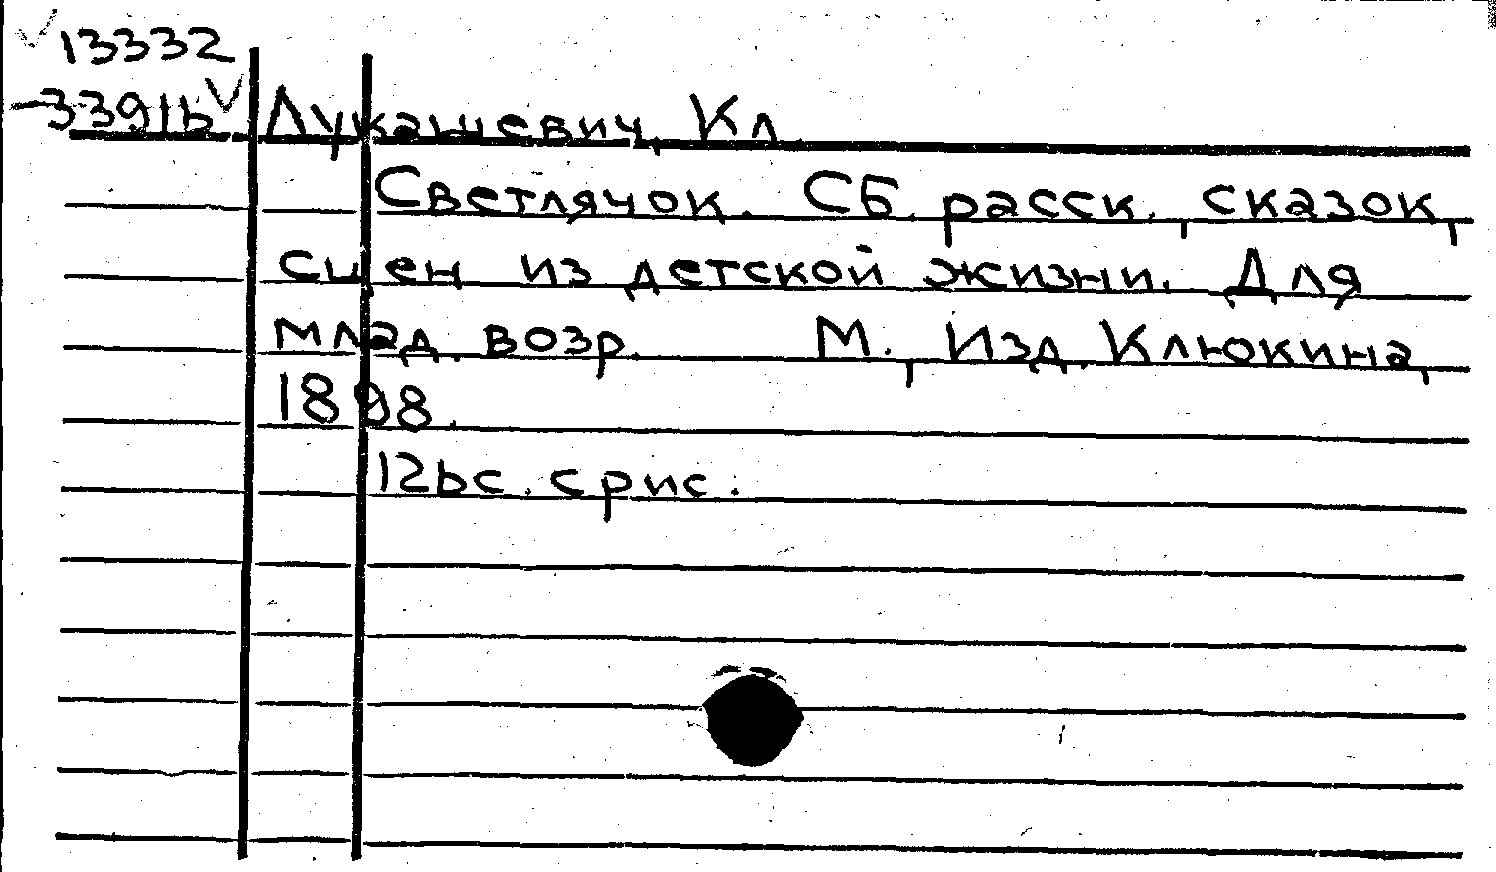 13332
33916 Лукашевич, Кл
Светлячок. Сб. расск., сказок,
сцен из детской жизни. Для
млад. возр. М., Изд. Клюкина,
1898.
126с. с рис.